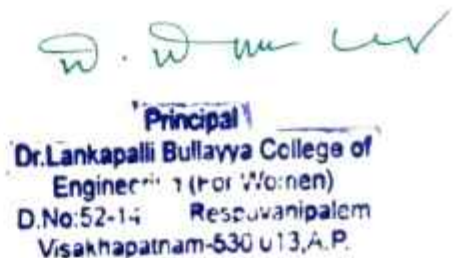 Principal
Dr.Lankapalli Bullayya College of
Engineering (For Women)
D.No:52-14 Resapuvanipalem
Visakhapatnam-530 013,A.P.